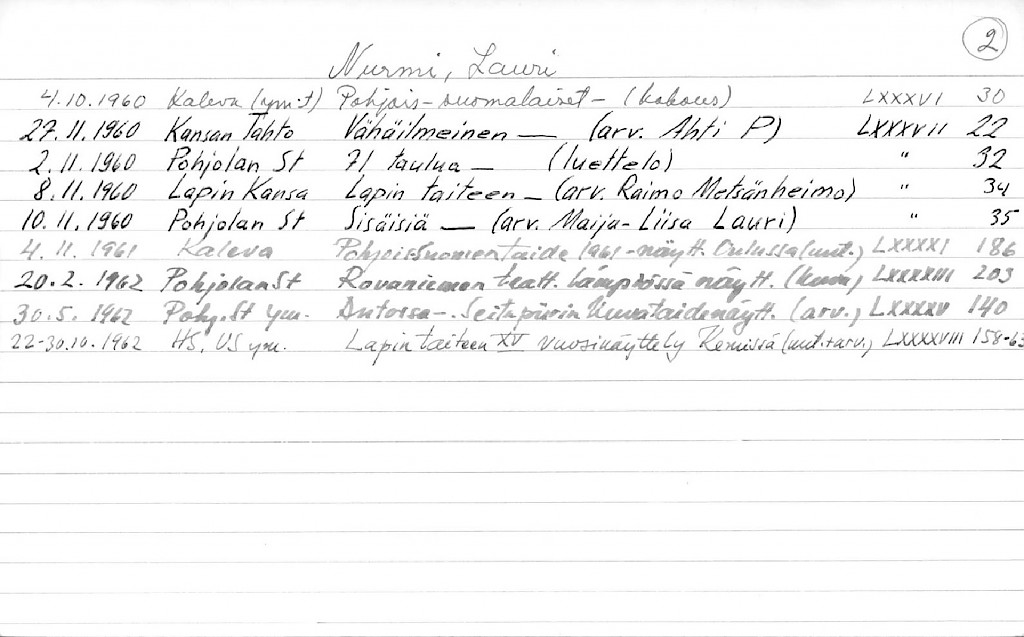 2
Nurmi, Lauri
4.10.1960 Kaleva (ym:t) Pohjois-suomalaiset - (kokous) LXXXVI 30
27.11.1960 Kansan Tahto Vähäilmeinen — (arv. Ahti P) LXXXVII 22
2.11.1960 Pohjolan St 71 taulua - (luettelo) " 32
8.11.1960 Lapin Kansa Lapin taiteen - (arv. Raimo Metsänheimo) " 34
10.11.1960 Pohjolan St Sisäisiä — (arv. Maija-Liisa Lauri) " 35
4.11.1961 Kaleva Pohjois-Suomen Taide 1961-näytt. Oulussa (uut.) LXXXXI 186
20.2.1962 Pohjolan St Rovaniemen teatt. lämpiössä näytt. (kuva) LXXXXIII 203
30.5.1962 Pohj. St ym. -. Seitapiirin Kuvataidenäytt. (arv.) LXXXXV 140
22-30.10.1962 HS, US ym. Lapin taiteen XV vuosinäyttely Kemissä (uut.+arv.) LXXXXVIII 158-63